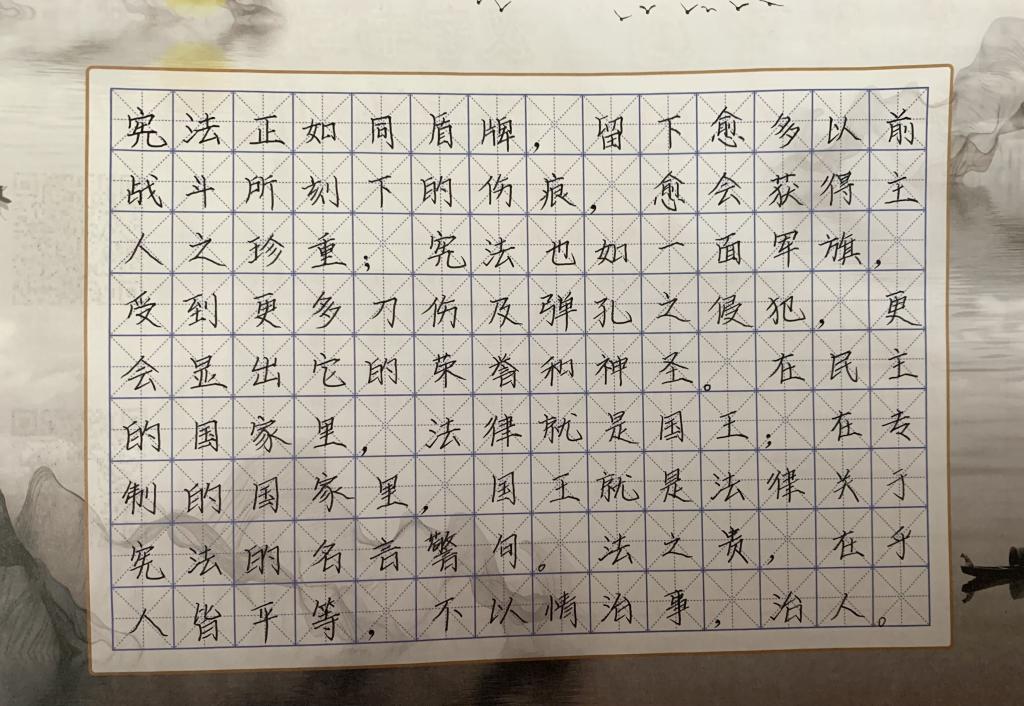 宪法正如同盾牌，留下愈多以前
战斗所刻下的伤痕，愈会获得主
人之珍重；宪法也如一面军旗，
受到更多刀伤及弹孔之侵犯，更
会显出它的荣誉和神圣。在民主
的国家里，法律就是国王；在专
制的国家里，国王就是法律关于
宪法的名言警句。法之贵，在乎
人皆平等，不以情治事，治人。